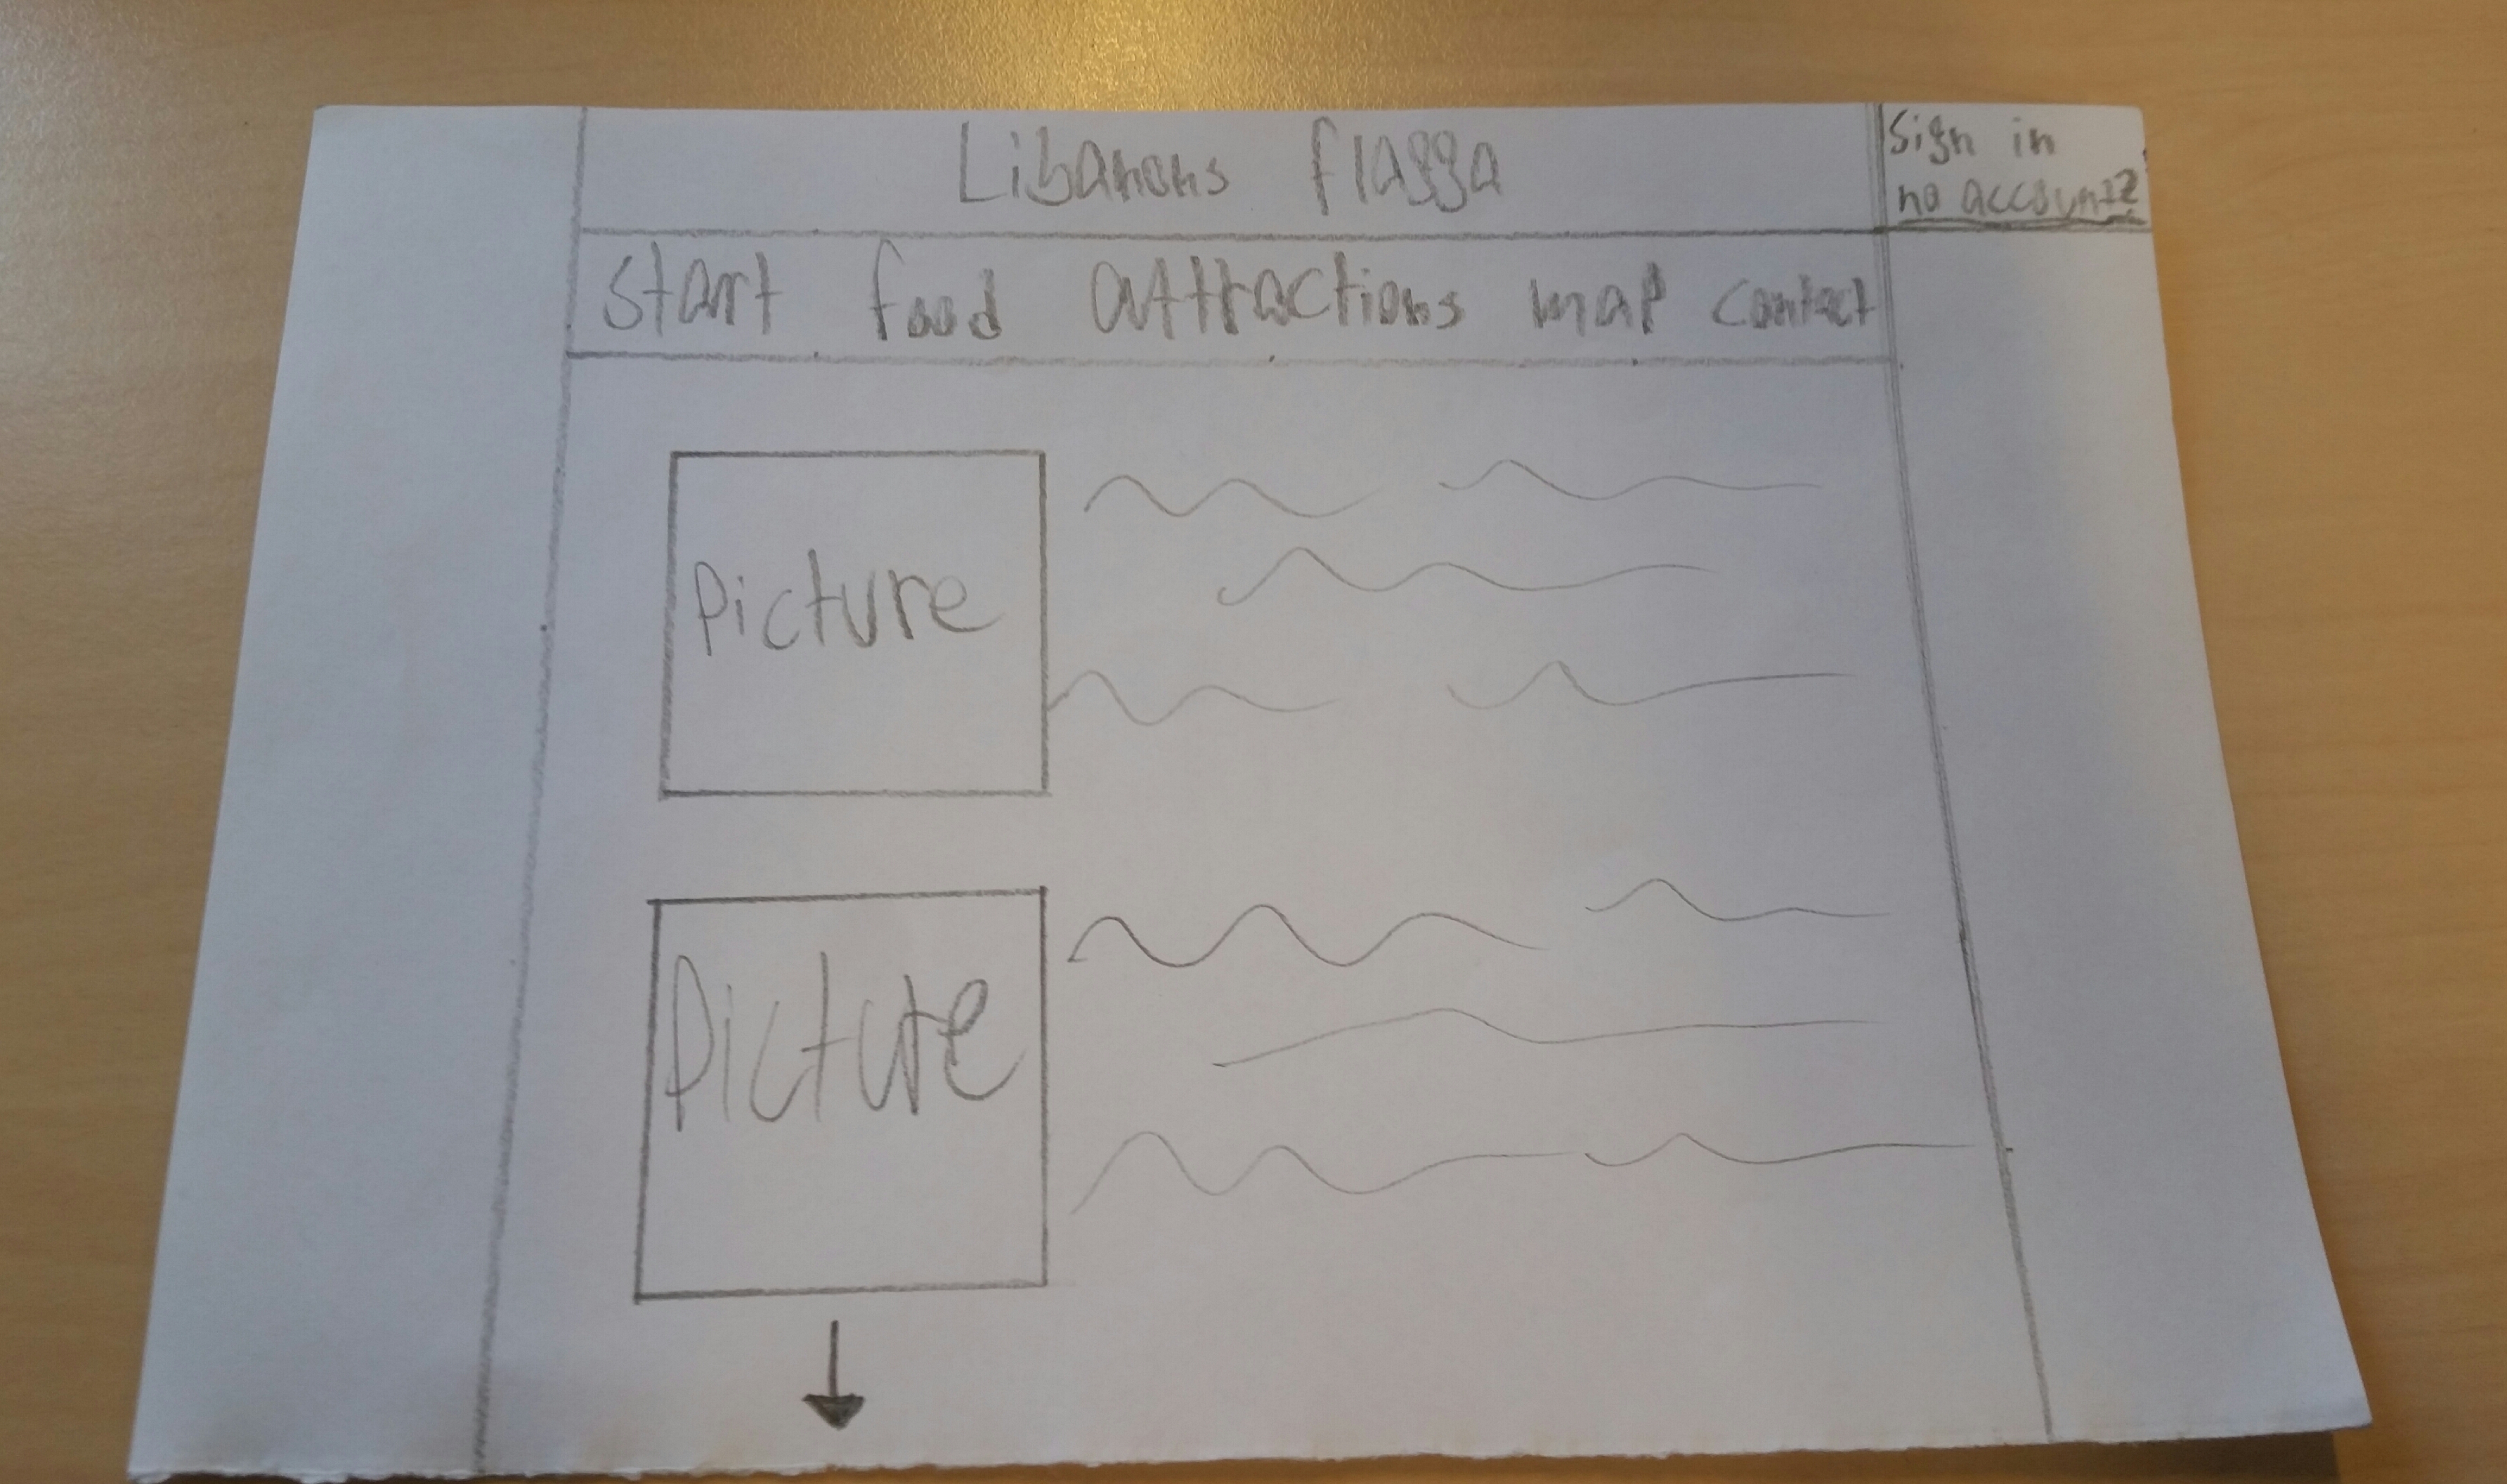 Libanons flagga
Sign in
no account?
Start food attractions map contact
Picture
Picture